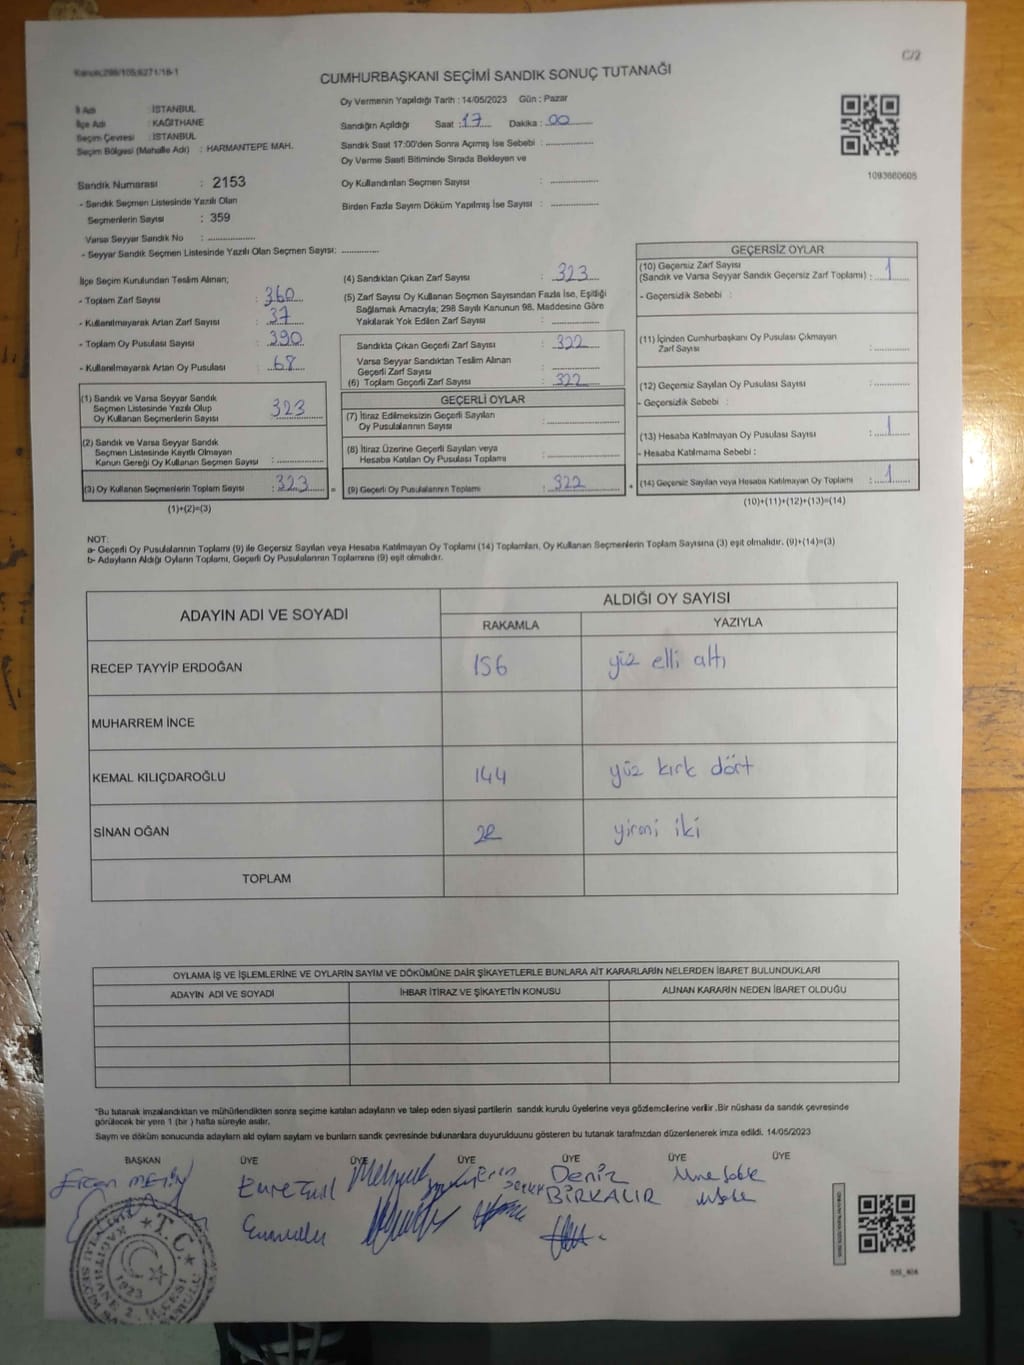 Kanun:298/105;6271/18-1
C/2
CUMHURBAŞKANI SEÇİMİ SANDIK SONUÇ TUTANAĞI
İl Adı : İSTANBUL
İlçe Adı : KAĞITHANE
Seçim Çevresi : İSTANBUL
Seçim Bölgesi (Mahalle Adı) : HARMANTEPE MAH.
Sandık Numarası : 2153
- Sandık Seçmen Listesinde Yazılı Olan
Seçmenlerin Sayısı : 359
Varsa Seyyar Sandık No :
- Seyyar Sandık Seçmen Listesinde Yazılı Olan Seçmen Sayısı:
Oy Vermenin Yapıldığı Tarih : 14/05/2023 Gün : Pazar
Sandığın Açıldığı Saat : 17 Dakika : 00
Sandık Saat 17:00'den Sonra Açılmış İse Sebebi :
Oy Verme Saati Bitiminde Sırada Bekleyen ve
Oy Kullandırılan Seçmen Sayısı :
Birden Fazla Sayım Döküm Yapılmış İse Sayısı :
1093660605
İlçe Seçim Kurulundan Teslim Alınan;
- Toplam Zarf Sayısı : 360
- Kullanılmayarak Artan Zarf Sayısı : 37
- Toplam Oy Pusulası Sayısı : 390
- Kullanılmayarak Artan Oy Pusulası : 68
(1) Sandık ve Varsa Seyyar Sandık
Seçmen Listesinde Yazılı Olup
Oy Kullanan Seçmenlerin Sayısı : 323
(2) Sandık ve Varsa Seyyar Sandık
Seçmen Listesinde Kayıtlı Olmayan
Kanun Gereği Oy Kullanan Seçmen Sayısı :
(3) Oy Kullanan Seçmenlerin Toplam Sayısı : 323 =
(1)+(2)=(3)
(4) Sandıktan Çıkan Zarf Sayısı : 323
(5) Zarf Sayısı Oy Kullanan Seçmen Sayısından Fazla İse, Eşitliği
Sağlamak Amacıyla; 298 Sayılı Kanunun 98. Maddesine Göre
Yakılarak Yok Edilen Zarf Sayısı :
Sandıkta Çıkan Geçerli Zarf Sayısı : 322
Varsa Seyyar Sandıktan Teslim Alınan
Geçerli Zarf Sayısı :
(6) Toplam Geçerli Zarf Sayısı : 322
GEÇERLİ OYLAR
(7) İtiraz Edilmeksizin Geçerli Sayılan
Oy Pusulalarının Sayısı :
(8) İtiraz Üzerine Geçerli Sayılan veya
Hesaba Katılan Oy Pusulası Toplamı :
(9) Geçerli Oy Pusulalarının Toplamı : 322 +
GEÇERSİZ OYLAR
(10) Geçersiz Zarf Sayısı
(Sandık ve Varsa Seyyar Sandık Geçersiz Zarf Toplamı) : 1
- Geçersizlik Sebebi :
(11) İçinden Cumhurbaşkanı Oy Pusulası Çıkmayan
Zarf Sayısı :
(12) Geçersiz Sayılan Oy Pusulası Sayısı :
- Geçersizlik Sebebi :
(13) Hesaba Katılmayan Oy Pusulası Sayısı : 1
- Hesaba Katılmama Sebebi :
(14) Geçersiz Sayılan veya Hesaba Katılmayan Oy Toplamı : 1
(10)+(11)+(12)+(13)=(14)
NOT:
a- Geçerli Oy Pusulalarının Toplamı (9) ile Geçersiz Sayılan veya Hesaba Katılmayan Oy Toplamı (14) Toplamları, Oy Kullanan Seçmenlerin Toplam Sayısına (3) eşit olmalıdır. (9)+(14)=(3)
b- Adayların Aldığı Oyların Toplamı, Geçerli Oy Pusulalarının Toplamına (9) eşit olmalıdır.
ADAYIN ADI VE SOYADI ALDIĞI OY SAYISI
RAKAMLA YAZIYLA
RECEP TAYYİP ERDOĞAN 156 yüz elli altı
MUHARREM İNCE
KEMAL KILIÇDAROĞLU 144 yüz kırk dört
SİNAN OĞAN 22 yirmi iki
TOPLAM
OYLAMA İŞ VE İŞLEMLERİNE VE OYLARIN SAYIM VE DÖKÜMÜNE DAİR ŞİKAYETLERLE BUNLARA AİT KARARLARIN NELERDEN İBARET BULUNDUKLARI
ADAYIN ADI VE SOYADI İHBAR İTİRAZ VE ŞİKAYETİN KONUSU ALINAN KARARIN NEDEN İBARET OLDUĞU
*Bu tutanak imzalandıktan ve mühürlendikten sonra seçime katılan adayların ve talep eden siyasi partilerin sandık kurulu üyelerine veya gözlemcilerine verilir. Bir nüshası da sandık çevresinde
görülecek bir yere 1 (bir ) hafta süreyle asılır.
Sayım ve döküm sonucunda adayların aldı oyların sayılarını ve bunların sandık çevresinde bulunanlara duyurulduunu gösteren bu tutanak tarafımızdan düzenlenerek imza edildi. 14/05/2023
BAŞKAN ÜYE ÜYE ÜYE ÜYE ÜYE ÜYE
Ercan METİN
Deniz
BİRKALIR
T.C.
KAĞITHANE 2. İLÇESİ
1923